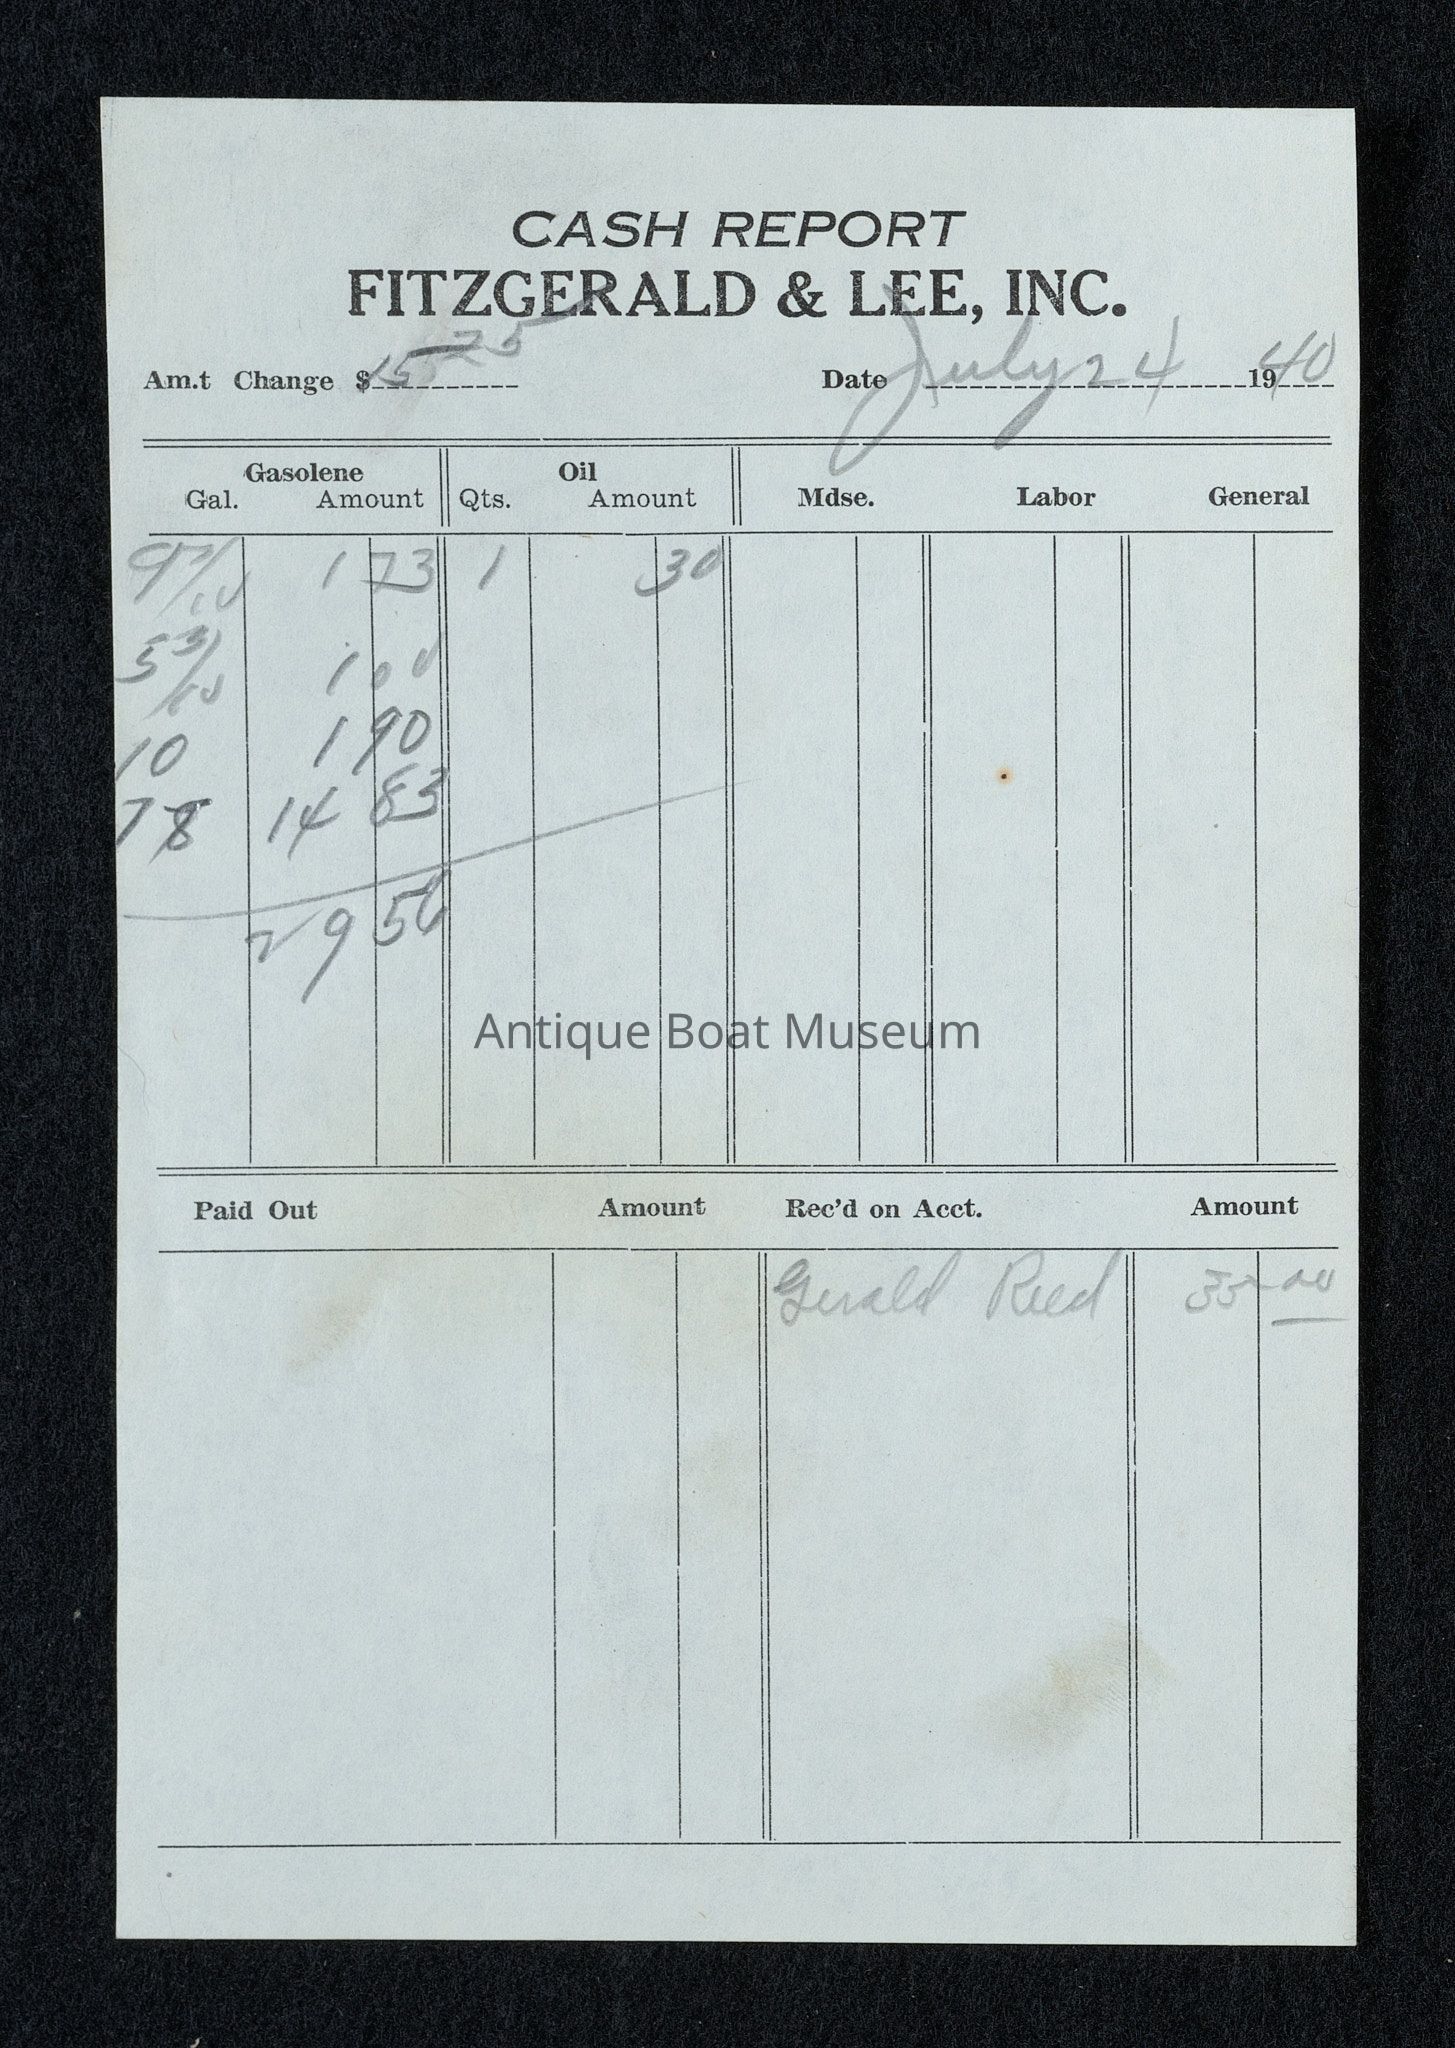 CASH REPORT
FITZGERALD & LEE, INC.
Am.t Change $ 15 75 Date July 24 1940
Gasolene Oil
Gal. Amount Qts. Amount Mdse. Labor General
1 73 1 30
5 3/10 1 00
10 1 90
78 14 83
29 56
Antique Boat Museum
Paid Out Amount Rec'd on Acct. Amount
Gerald Reed